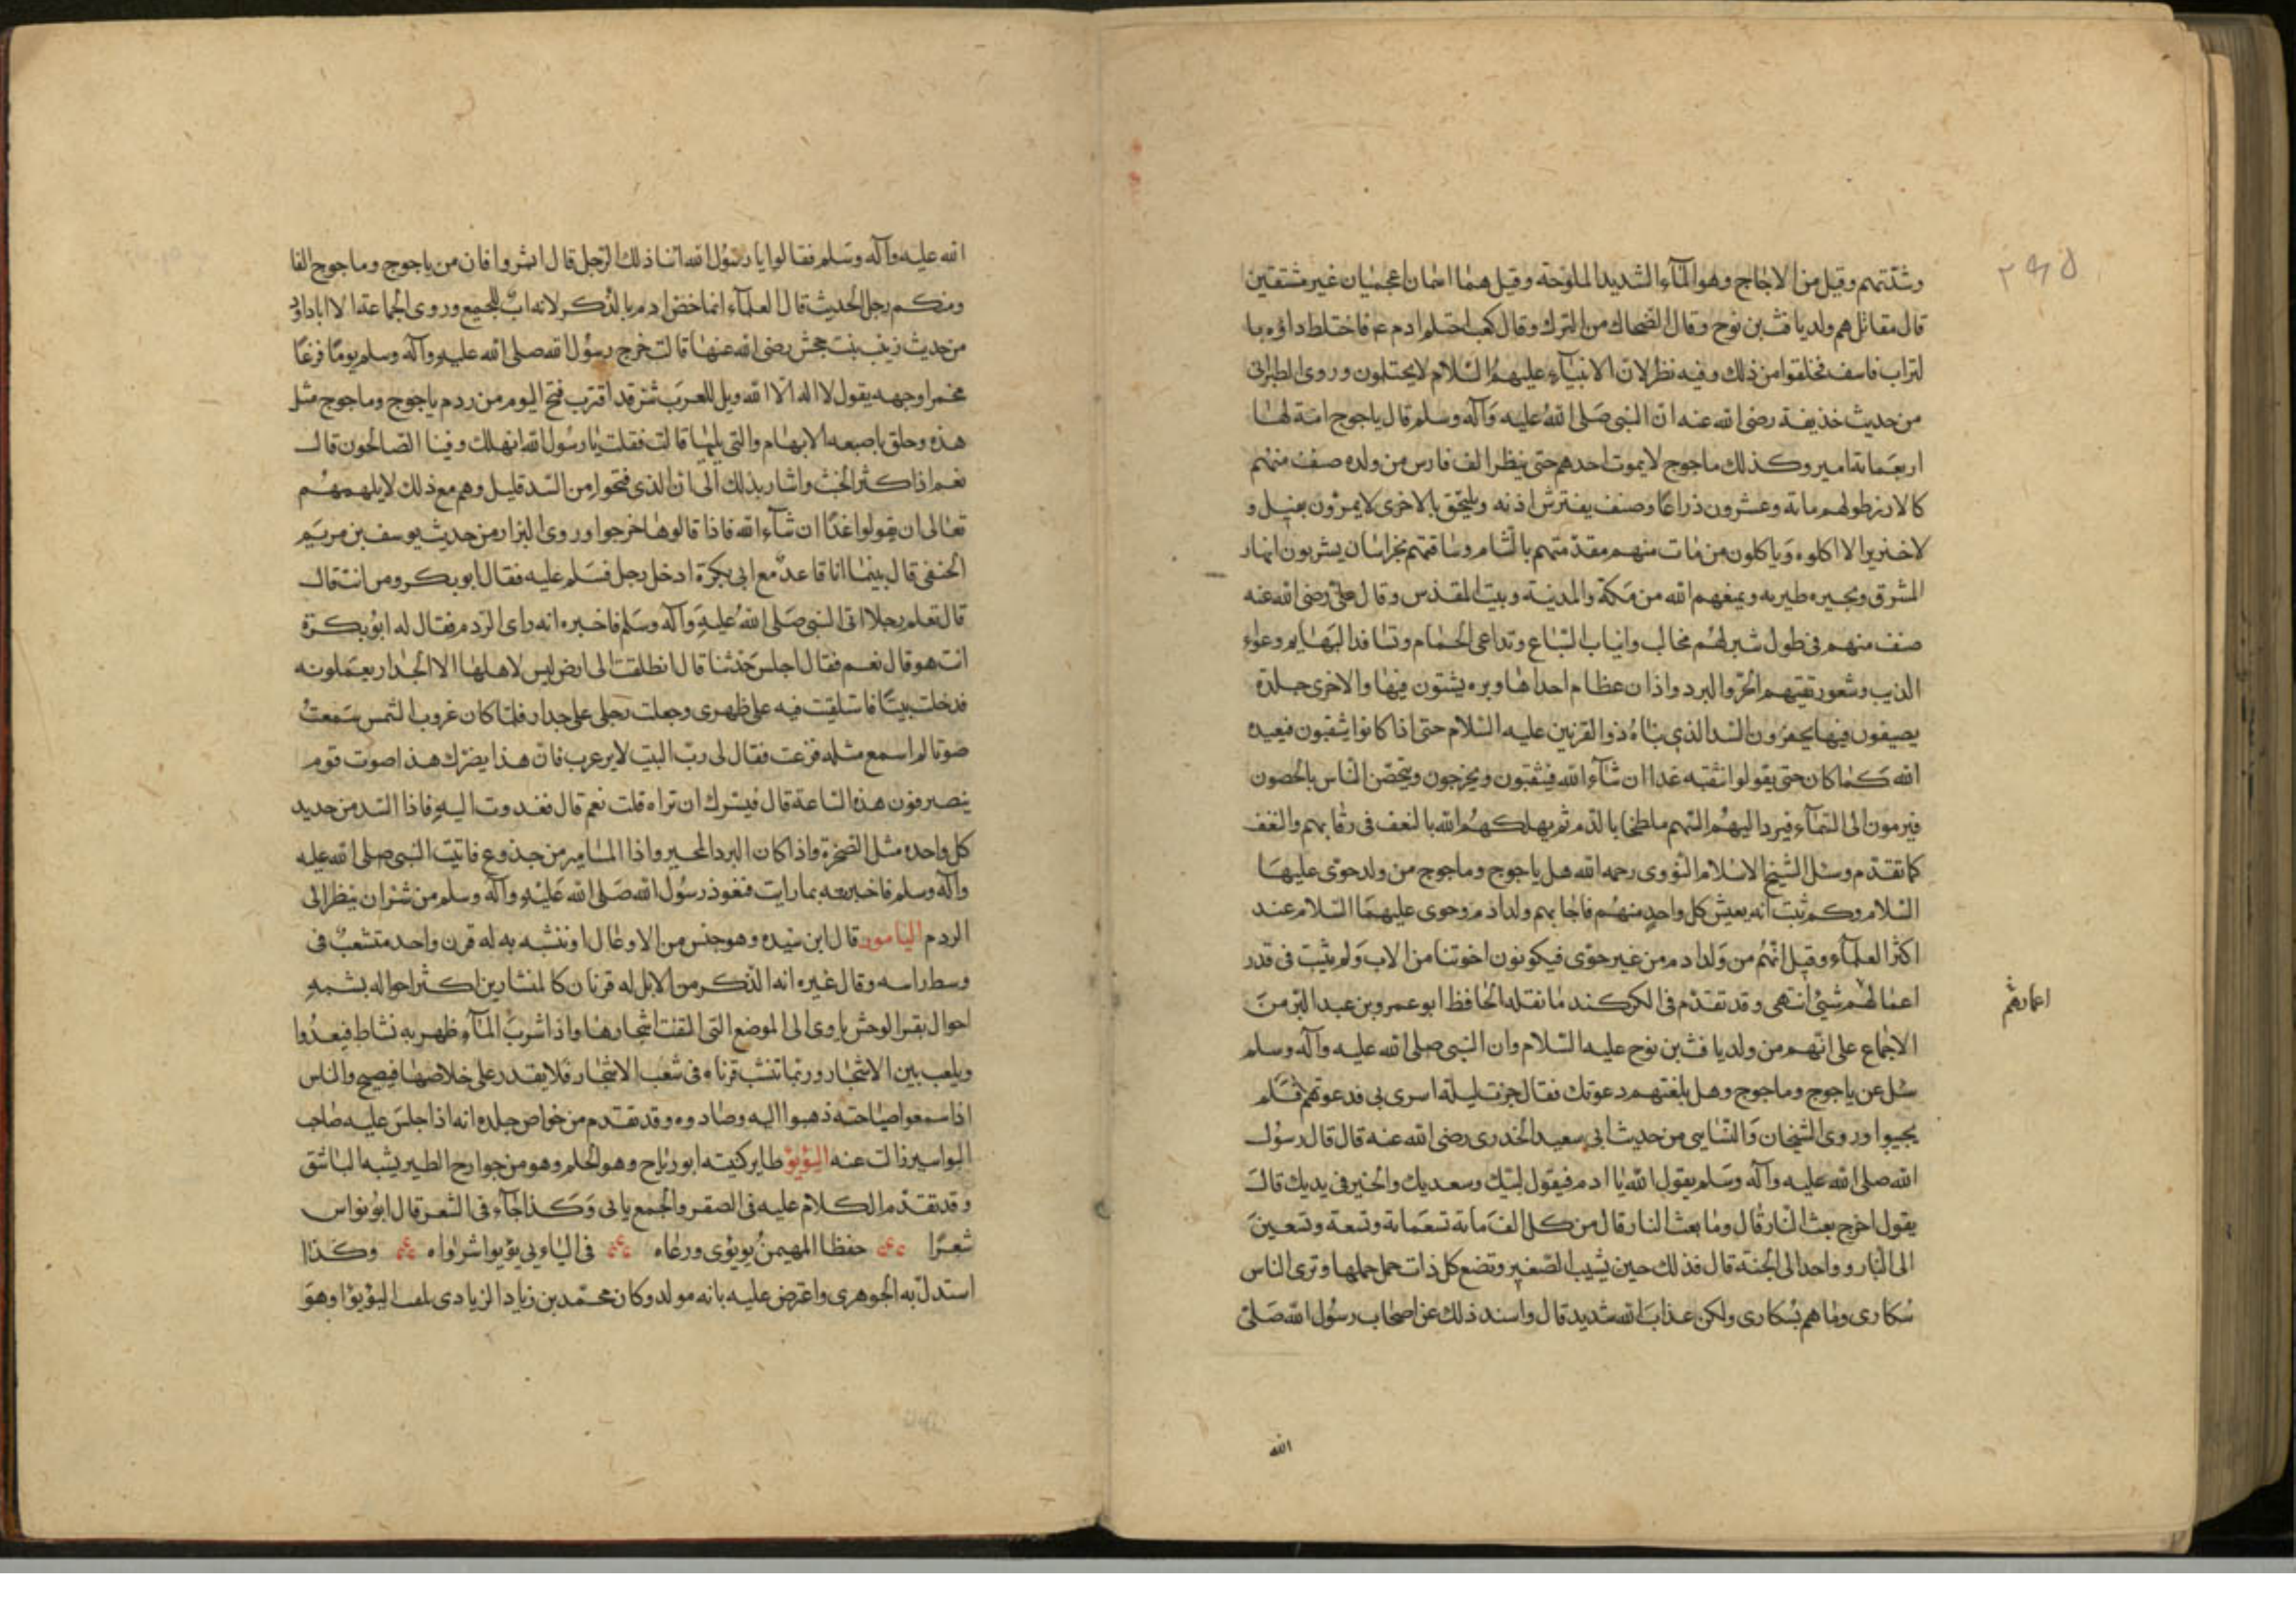 وشدتهم وقيل من الاجاج وهو المآء الشديد الملوحة وقيل هما اسمان اعجميان غير مشتقين
قال مقاتل هم ولد يافث بن نوح وقال الضحاك من الترك وقال كعب احتلم ادم عم فاختلط داؤه با
لتراب فاسف فخلقوا من ذلك وفيه نظر لان الانبيآء عليهم السلام لايحتلمون وروى الطبرانى
من حديث حذيفة رضى الله عنه ان النبى صلى الله عليه وآله وسلم قال ياجوج امة لها
اربعماية امير وكذلك ماجوج لايموت احدهم حتى ينظر الف فارس من ولده صنف منهم
كالارز طولهم ماية وعشرون ذراعا وصنف يفترش اذنه ويلتحق بالاخرى لايمرون بفيل و
لاخنزير الا اكلوه وياكلون من مات منهم مقدمتهم بالشام وساقتهم بخراسان يشربون انهار
المشرق وبحيره طيريه ويمنعهم الله من مكة والمدينة وبيت المقدس وقال على رضى الله عنه
صنف منهم فى طول شبر لهم مخالب وانياب السباع وتداعى الحمام وتسافد البهايم وعواء
الذيب وشعور تقيهم الحر والبرد واذان عظام احداها وبره يشتون فيها والاخرى جلدة
يصيفون فيها يحفرون السد الذى بناه ذوالقرنين عليه السلام حتى اذا كانوا يثقبون فيعيده
الله كما كان حتى يقولوا نثقبه غدا ان شآء الله فيثقبون ويخرجون ويتحصن الناس بالحصون
فيرمون الى السمآء فيرد اليهم السهم ملطخا بالدم ثم يهلكهم الله بالنغف فى رقابهم والنغف
كما تقدم وسئل الشيخ الاسلام النووى رحمه الله هل ياجوج وماجوج من ولد حوى عليها
السلام وكم ثبت انه يعيش كل واحد منهم فاجابهم ولد ادم وحوى عليهما السلام عند
اكثر العلمآء وقيل انهم من ولد ادم من غير حوى فيكونون اخوتنا من الاب ولم يثبت فى قدر
اعمالهم شئ انتهى وقد تقدم فى الكركند مانقله الحافظ ابو عمرو بن عبد البر من
اعمارهم
الاجماع على انهم من ولد يافث بن نوح عليه السلام وان النبى صلى الله عليه وآله وسلم
سئل عن ياجوج وماجوج وهل بلغتهم دعوتك فقال جزت ليلة اسرى بى فدعوتهم فلم
يجيبوا وروى الشيخان والنساى من حديث ابى سعيد الخدرى رضى الله عنه قال قال رسول
الله صلى الله عليه وآله وسلم يقول الله يا ادم فيقول لبيك وسعديك والخير فى يديك قال
يقول اخرج بعث النار قال وما بعث النار قال من كل الف ماية تسعماية وتسعة وتسعين
الى النار وواحد الى الجنة قال فذلك حين يشيب الصغير وتضع كل ذات حمل حملها وترى الناس
سكارى وماهم بسكارى ولكن عذاب الله شديد قال واسند ذلك عن اصحاب رسول الله صلى
الله
الله عليه وآله وسلم فقالوا يا رسول الله اننا ذلك الرجل قال ابشروا فان من ياجوج وماجوج الفا
ومنكم رجل الحديث قال العلمآء انما خض ادم بالذكر لانه اب للجميع وروى الجماعة الا اباداود
من حديث زينب بنت جحش رضى الله عنها قالت خرج رسول الله صلى الله عليه وآله وسلم يوما فزعا
محمرا وجهه يقول لا اله الا الله ويل للعرب شر قد اقترب فتح اليوم من ردم ياجوج وماجوج مثل
هذه وحلق باصبعه الابهام والتى يليها قالت فقلت يا رسول الله انهلك وفينا الصالحون قال
نعم اذا كثر الخبث واشار بذلك الى ان الذى فتحوا من السد قليل وهم مع ذلك لايلهمهم
تعالى ان يقولوا غدا ان شآء الله فاذا قالوها خرجوا وروى البزار من حديث يوسف بن مريم
الحنفى قال بينما انا قاعد مع ابى بكرة ادخل رجل فسلم عليه فقال ابو بكر ومن انت قال
قال تعلم رجلا اتى النبى صلى الله عليه وآله وسلم فاخبره انه راى الردم فقال له ابو بكرة
انت هو قال نعم فقال اجلس حدثنا قال انطلقت الى ارض ليس لاهلها الا الجدار يعملونه
فدخلت بيتا فاستلقيت فيه على ظهرى وجعلت رجلى على جدار فلما كان غروب الشمس سمعت
صوتا لم اسمع مثله فزعت فقال لى رب البيت لا يرعرب فان هذا يضرك هذا صوت قوم
ينصرفون هذه الساعة قال فيسرك ان تراه قلت نعم قال فغدوت اليه فاذا السد من حديد
كل واحده مثل الصخرة واذا كان البرد المحبر واذا المسامير من جذوع فاتيت النبى صلى الله عليه
وآله وسلم فاخبرته بما رايت فغوذ رسول الله صلى الله عليه وآله وسلم من شر ان ينظر الى
الردم اليامور قال ابن سيده وهو جنس من الاوعال او ننشبه به له قرن واحد متشعب فى
وسط راسه وقال غيره انه الذكر من الابل له قرنان كالمنشارين اكثر احواله بشبه
احوال بقر الوحش ياوى الى الموضع التى التفت اشجارها واذا شرب المآء ظهر به نشاط فيعدوا
ويلعب بين الاشجار وربما تنشب قرناه فى شعب الاشجار فلا يقدر على خلاصها فيصيح والناس
اذا سمعوا صياحته ذهبوا اليه وصادوه وقد تقدم من خواص جلده انه اذا جلس عليه صاحب
البواسير زالت عنه اليؤيؤ طاير كنيته ابو رياح وهو الحلم وهو من جوارح الطير يشبه الباشق
وقد تقدم الكلام عليه فى الصقر والجمع يايى وكذا جآء فى الشعر قال ابونواس
شعرا حفظ المهيمن يويؤى ورعاه فى اليايى يؤيوا شرواه وكذا
استدل به الجوهرى واعترض عليه بانه مولد وكان محمد بن زياد الزيادى يلقب اليؤيؤا وهو